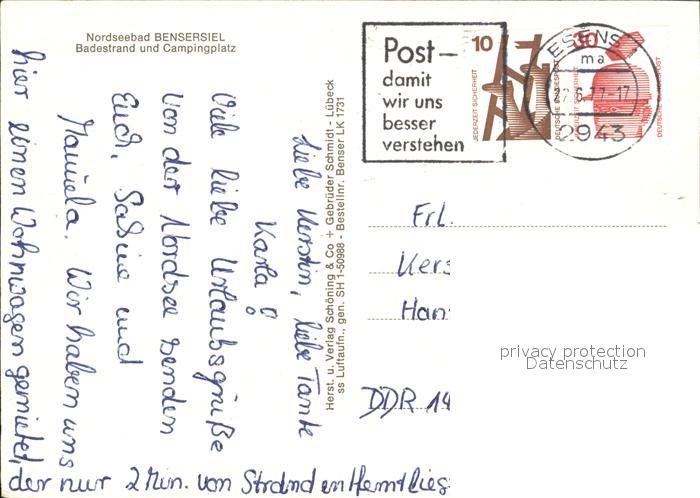 Nordseebad BENSERSIEL
Badestrand und Campingplatz
Post-
damit
wir uns
besser
verstehen
10
JEDERZEIT SICHERHEIT
DEUTSCHE BUNDESPOST
30
JEDERZEIT SICHERHEIT
DEUTSCHE BUNDESPOST
ESENS
ma
22.6.77-17
2943
Herst. u. Verlag Schöning & Co + Gebrüder Schmidt - Lübeck
ss Luftaufn., gen. SH 1-50988 - Bestellnr. Benser LK 1731
Liebe Kerstin, liebe Tante
Karla!
Viele liebe Urlaubsgrüße
von der Nordsee senden
Euch, Sabine und
Manuela. Wir haben uns
hier einen Wohnwagen gemietet,
der nur 2 Min. von Strand entfernt lieg
Frl.
Kers
Han
DDR 14
privacy protection
Datenschutz